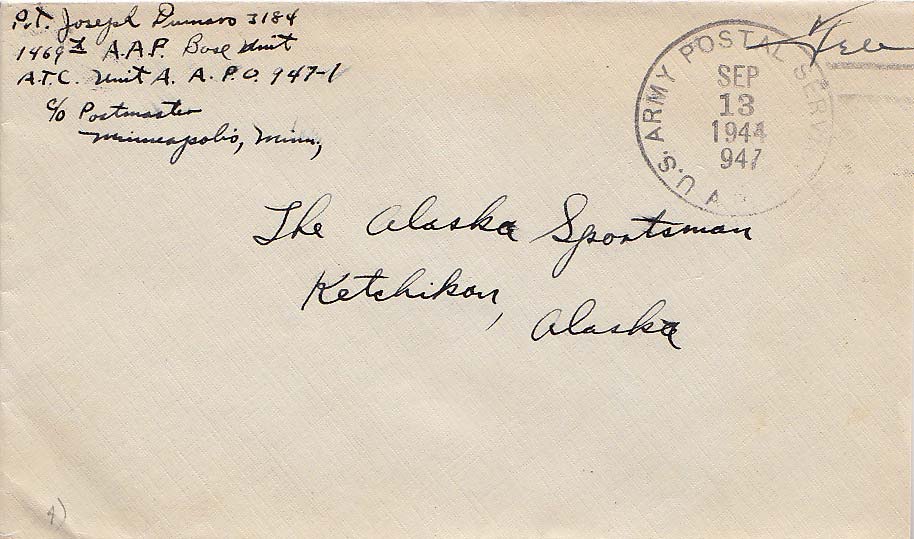 Pvt. Joseph Dumaro 3184
1469th A.A.F. Base Unit
A.T.C. Unit A. A.P.O. 947-1
c/o Postmaster
Minneapolis, Minn.,
Free
U.S. ARMY POSTAL SERV
SEP
13
1944
947
The Alaska Sportsman
Ketchikan,
Alaska
4)